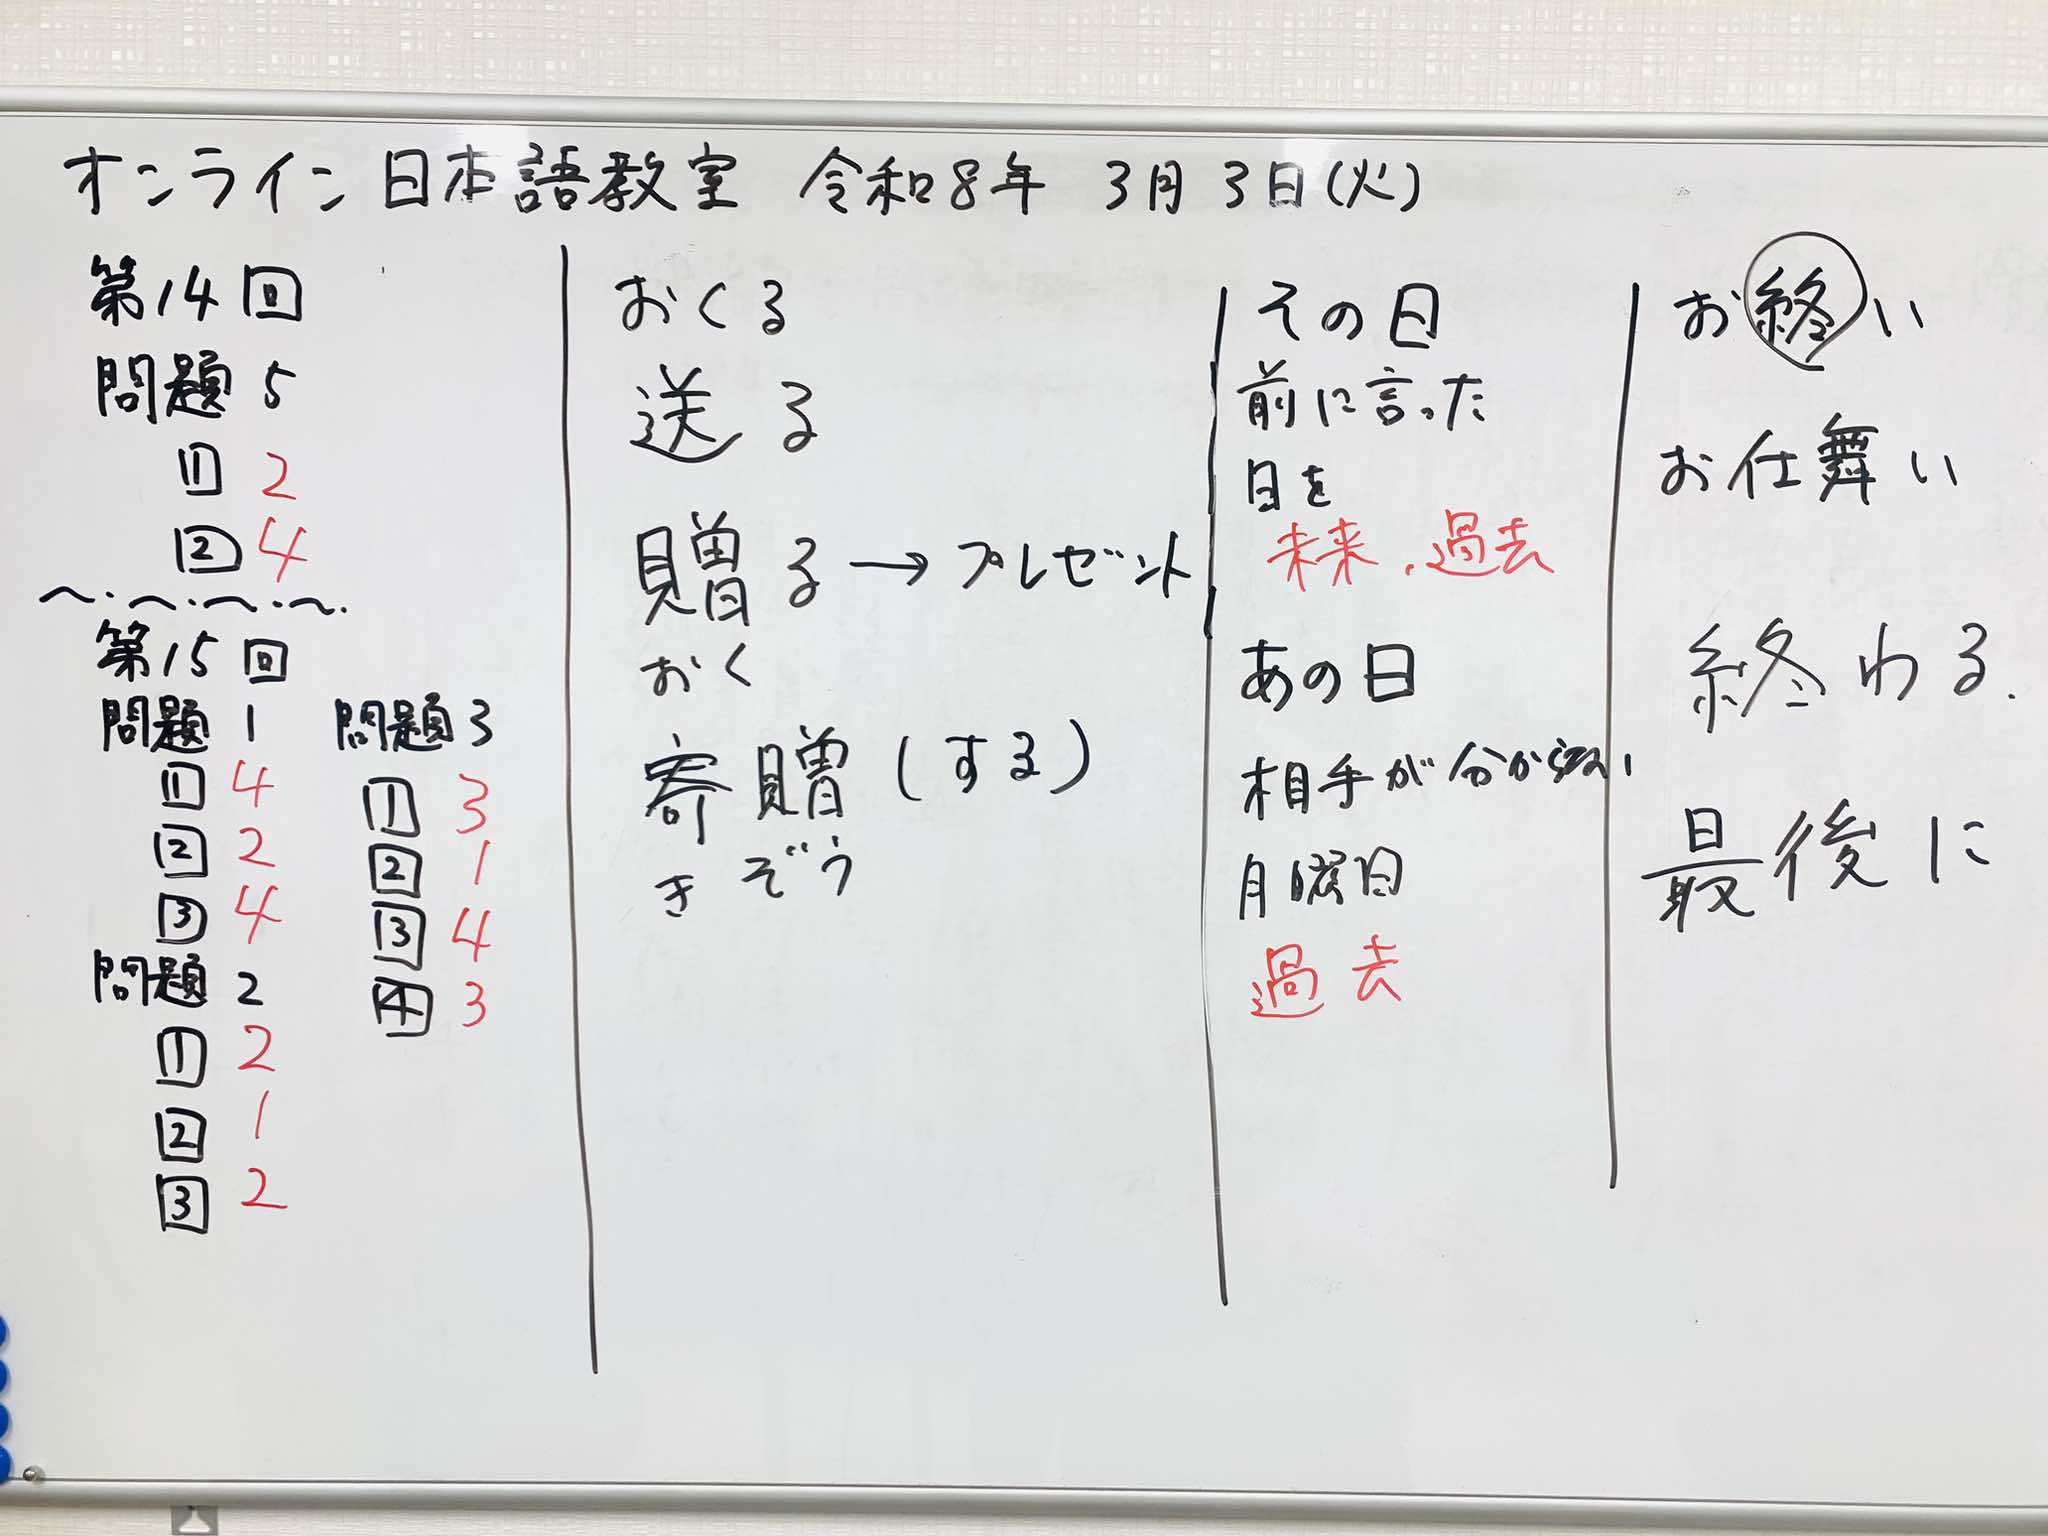 オンライン日本語教室 令和8年 3月3日(火)
第14回
問題5
1 2
2 4
第15回
問題1
1 4
2 2
3 4
問題2
1 2
2 1
3 2
問題3
1 3
2 1
3 4
4 3
おくる
送る
贈る→プレゼント
おく
寄贈(する)
きぞう
その日
前に言った
日を
未来.過去
あの日
相手が分からない
月曜日
過去
お終い
お仕舞い
終わる.
最後に